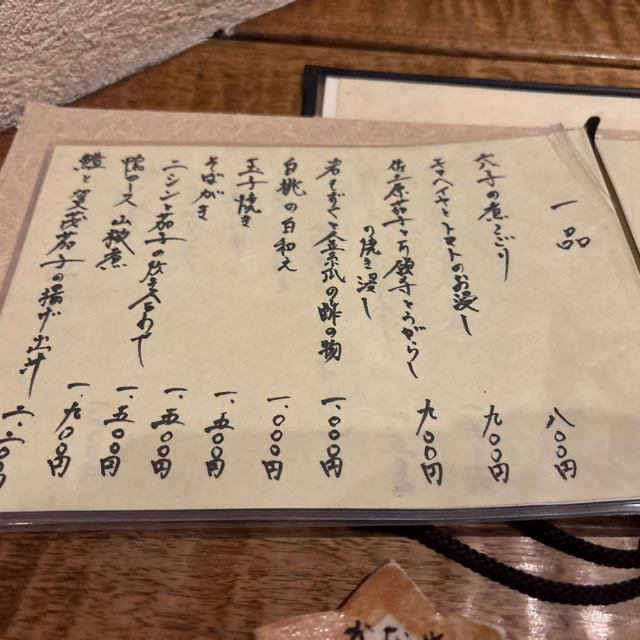 一品
穴子の煮こごり 八〇〇円
モロヘイヤとトマトのお浸し 九〇〇円
賀茂茄子と万願寺とうがらし
の焼浸し 九〇〇円
岩もずくと金糸瓜の酢の物 一.〇〇〇円
白桃の白和え 一.〇〇〇円
玉子焼き 一.五〇〇円
そばがき 一.五〇〇円
ニシンと茄子の炊き合わせ 一.五〇〇円
鴨ロース 山椒煮 一.九〇〇円
鱧と賀茂茄子の揚げ出汁 二.二〇〇円